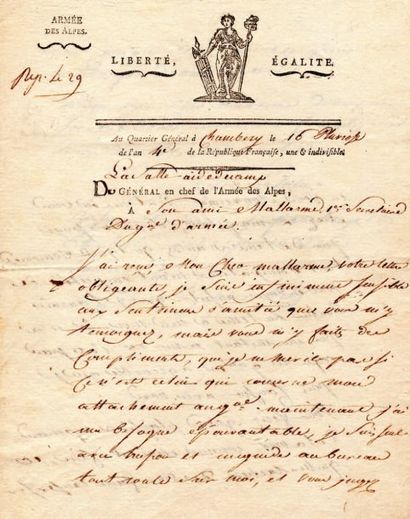 ARMÉE
DES ALPES.
LIBERTÉ, ÉGALITE.
Rep. le 29
Au Quartier Général à Chambery le 16 Pluviose
de l'an 4e de la République Française, une & indivisible.
LaSalle aide de camp
DU GÉNÉRAL en chef de l'Armée des Alpes,
À Son ami Mallarmé 1er Secretaire
Du gal d'armée.
J'ai reçu, Mon Cher mallarmé, votre lettre
obligeante, je Suis infiniment Sensible
aux Sentimens d'amitié que vous m'y
temoignez, mais vous m'y faites des
Complimens, que je ne merite pas si
Ce n'est celui qui concerne mon
attachement au gal. maintenant j'ai
une besogne épouvantable, je Suis seul
au bureau
tout roule Sur moi, et vous jugez